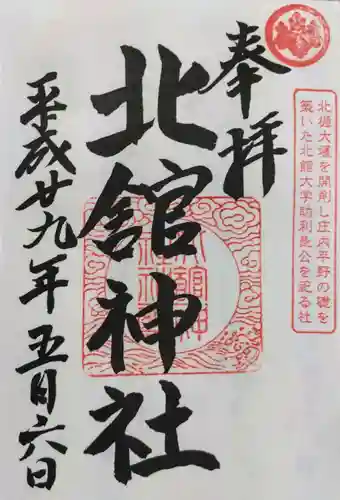 奉拝
北樋大堰を開削し庄内平野の礎を
築いた北館大学助利長公を祀る社
北舘神社
平成廿九年五月六日